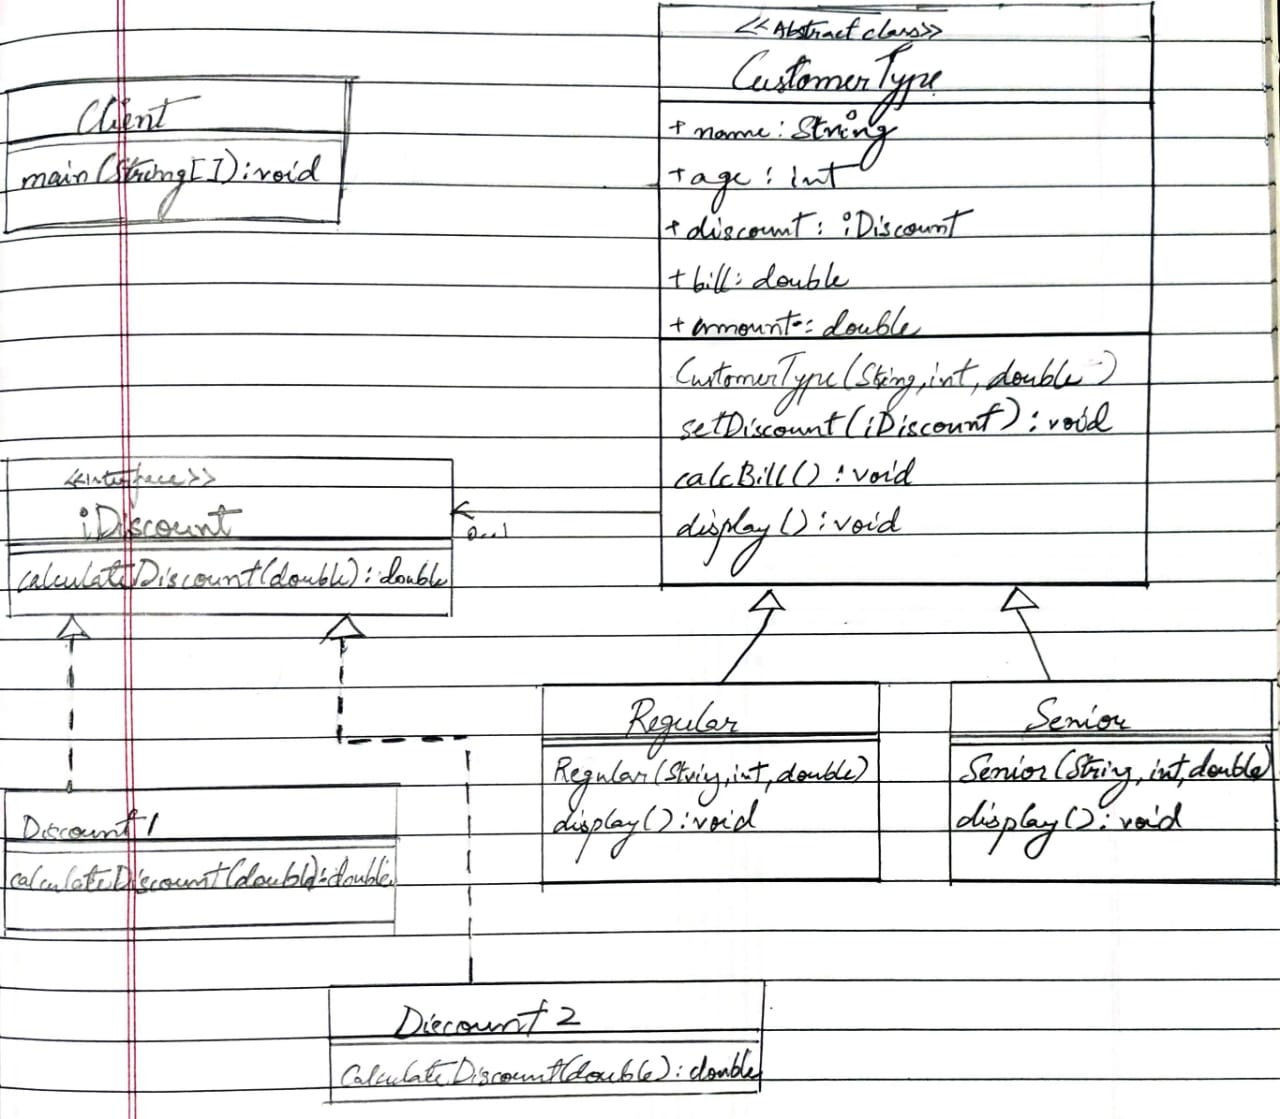 <<Abstract class>>
CustomerType
+ name: String
+ age: int
+ discount: iDiscount
+ bill: double
+ amount: double
CustomerType(String, int, double)
setDiscount(iDiscount): void
calcBill(): void
display(): void
Client
main(String[]): void
<<Interface>>
iDiscount
calculateDiscount(double): double
0...1
Regular
Regular(String, int, double)
display(): void
Senior
Senior(String, int, double)
display(): void
Discount 1
calculateDiscount(double): double
Discount 2
CalculateDiscount(double): double